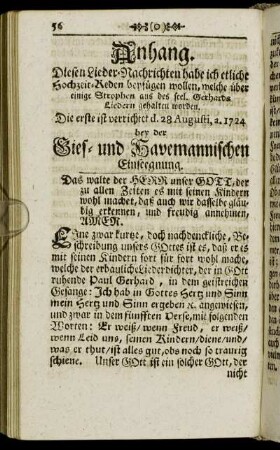 56
Anhang.
Diesen Lieder-Nachrichten habe ich etliche
Hochzeit-Reden beyfügen wollen, welche über
einige Strophen aus des seel. Gerhards
Liedern gehalten worden.
Die erste ist verrichtet d. 28 Augusti, a. 1724
bey der
Gies- und Havemannischen
Einseegnung.
Das walte der HERR unser GOTT, der
zu allen Zeiten es mit seinen Kindern
wohl machet, daß auch wir dasselbe gläu-
big erkennen, und freudig annehmen,
AMEN.
Eine zwar kurtze, doch nachdenckliche, Be-
schreibung unsers GOttes ist es, daß er es
mit seinen Kindern fort für fort wohl mache,
welche der erbauliche Liederdichter, der in GOtt
ruhende Paul Gerhard, in dem geistreichen
Gesange: Ich hab in Gottes Hertz und Sinn
mein Hertz und Sinn ergeben ꝛc. angewiesen,
und zwar in dem fünfften Verse, mit folgenden
Worten: Er weiß/ wenn Freud, er weiß/
wenn Leid uns, seinen Kindern/diene/und/
was er thut/ist alles gut,obs noch so traurig
schiene. Unser GOtt ist ein solcher GOtt, der
nicht